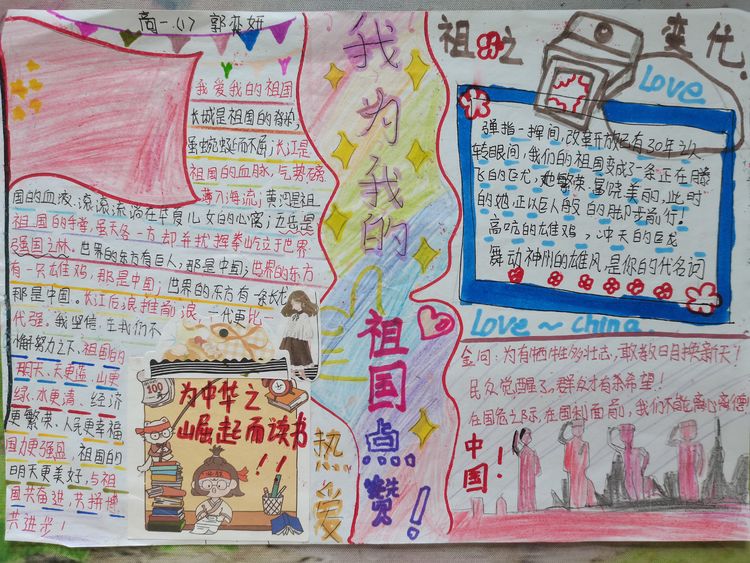 高一.(1) 郭奕妍
我爱我的祖国
长城是祖国的脊梁,
虽蜿蜒而不屈;长江是
祖国的血脉,气势磅
礴入海流;黄河是祖
国的血液,滚滚流淌在华夏儿女的心窝;五岳是
祖国的手臂,虽天各一方却并拢撑拳屹立于世界
强国之林.世界的东方有巨人,那是中国;世界的东方
有一只雄鸡,那是中国;世界的东方有一条长龙
那是中国.长江后浪推前浪,一代更比一
代强.我坚信,在我们不
懈努力之下,祖国的
明天,天更蓝,山更
绿,水更清,经济
更繁荣,人民更幸福
国力更强盛,祖国的
明天更美好,与祖
国共奋进,共拼搏
共进步!
100
为中华之
崛起而读书
!!
热爱
我为我的祖国点赞!
祖国之变化.
Love
弹指一挥间,改革开放已有30年了
转眼间,我们的祖国变成了一条正在腾
飞的巨龙,她繁荣,富饶美丽,此时
的她正以巨人般的的脚步前行!
高吭的雄鸡,冲天的巨龙
舞动神州的雄风是你的代名词
Love ~ china.
金问:为有牺牲多壮志,敢教日月换新天!
民众觉醒了,群众才有希望!
在国危之际,在国利面前,我们不能离心离德
中国!